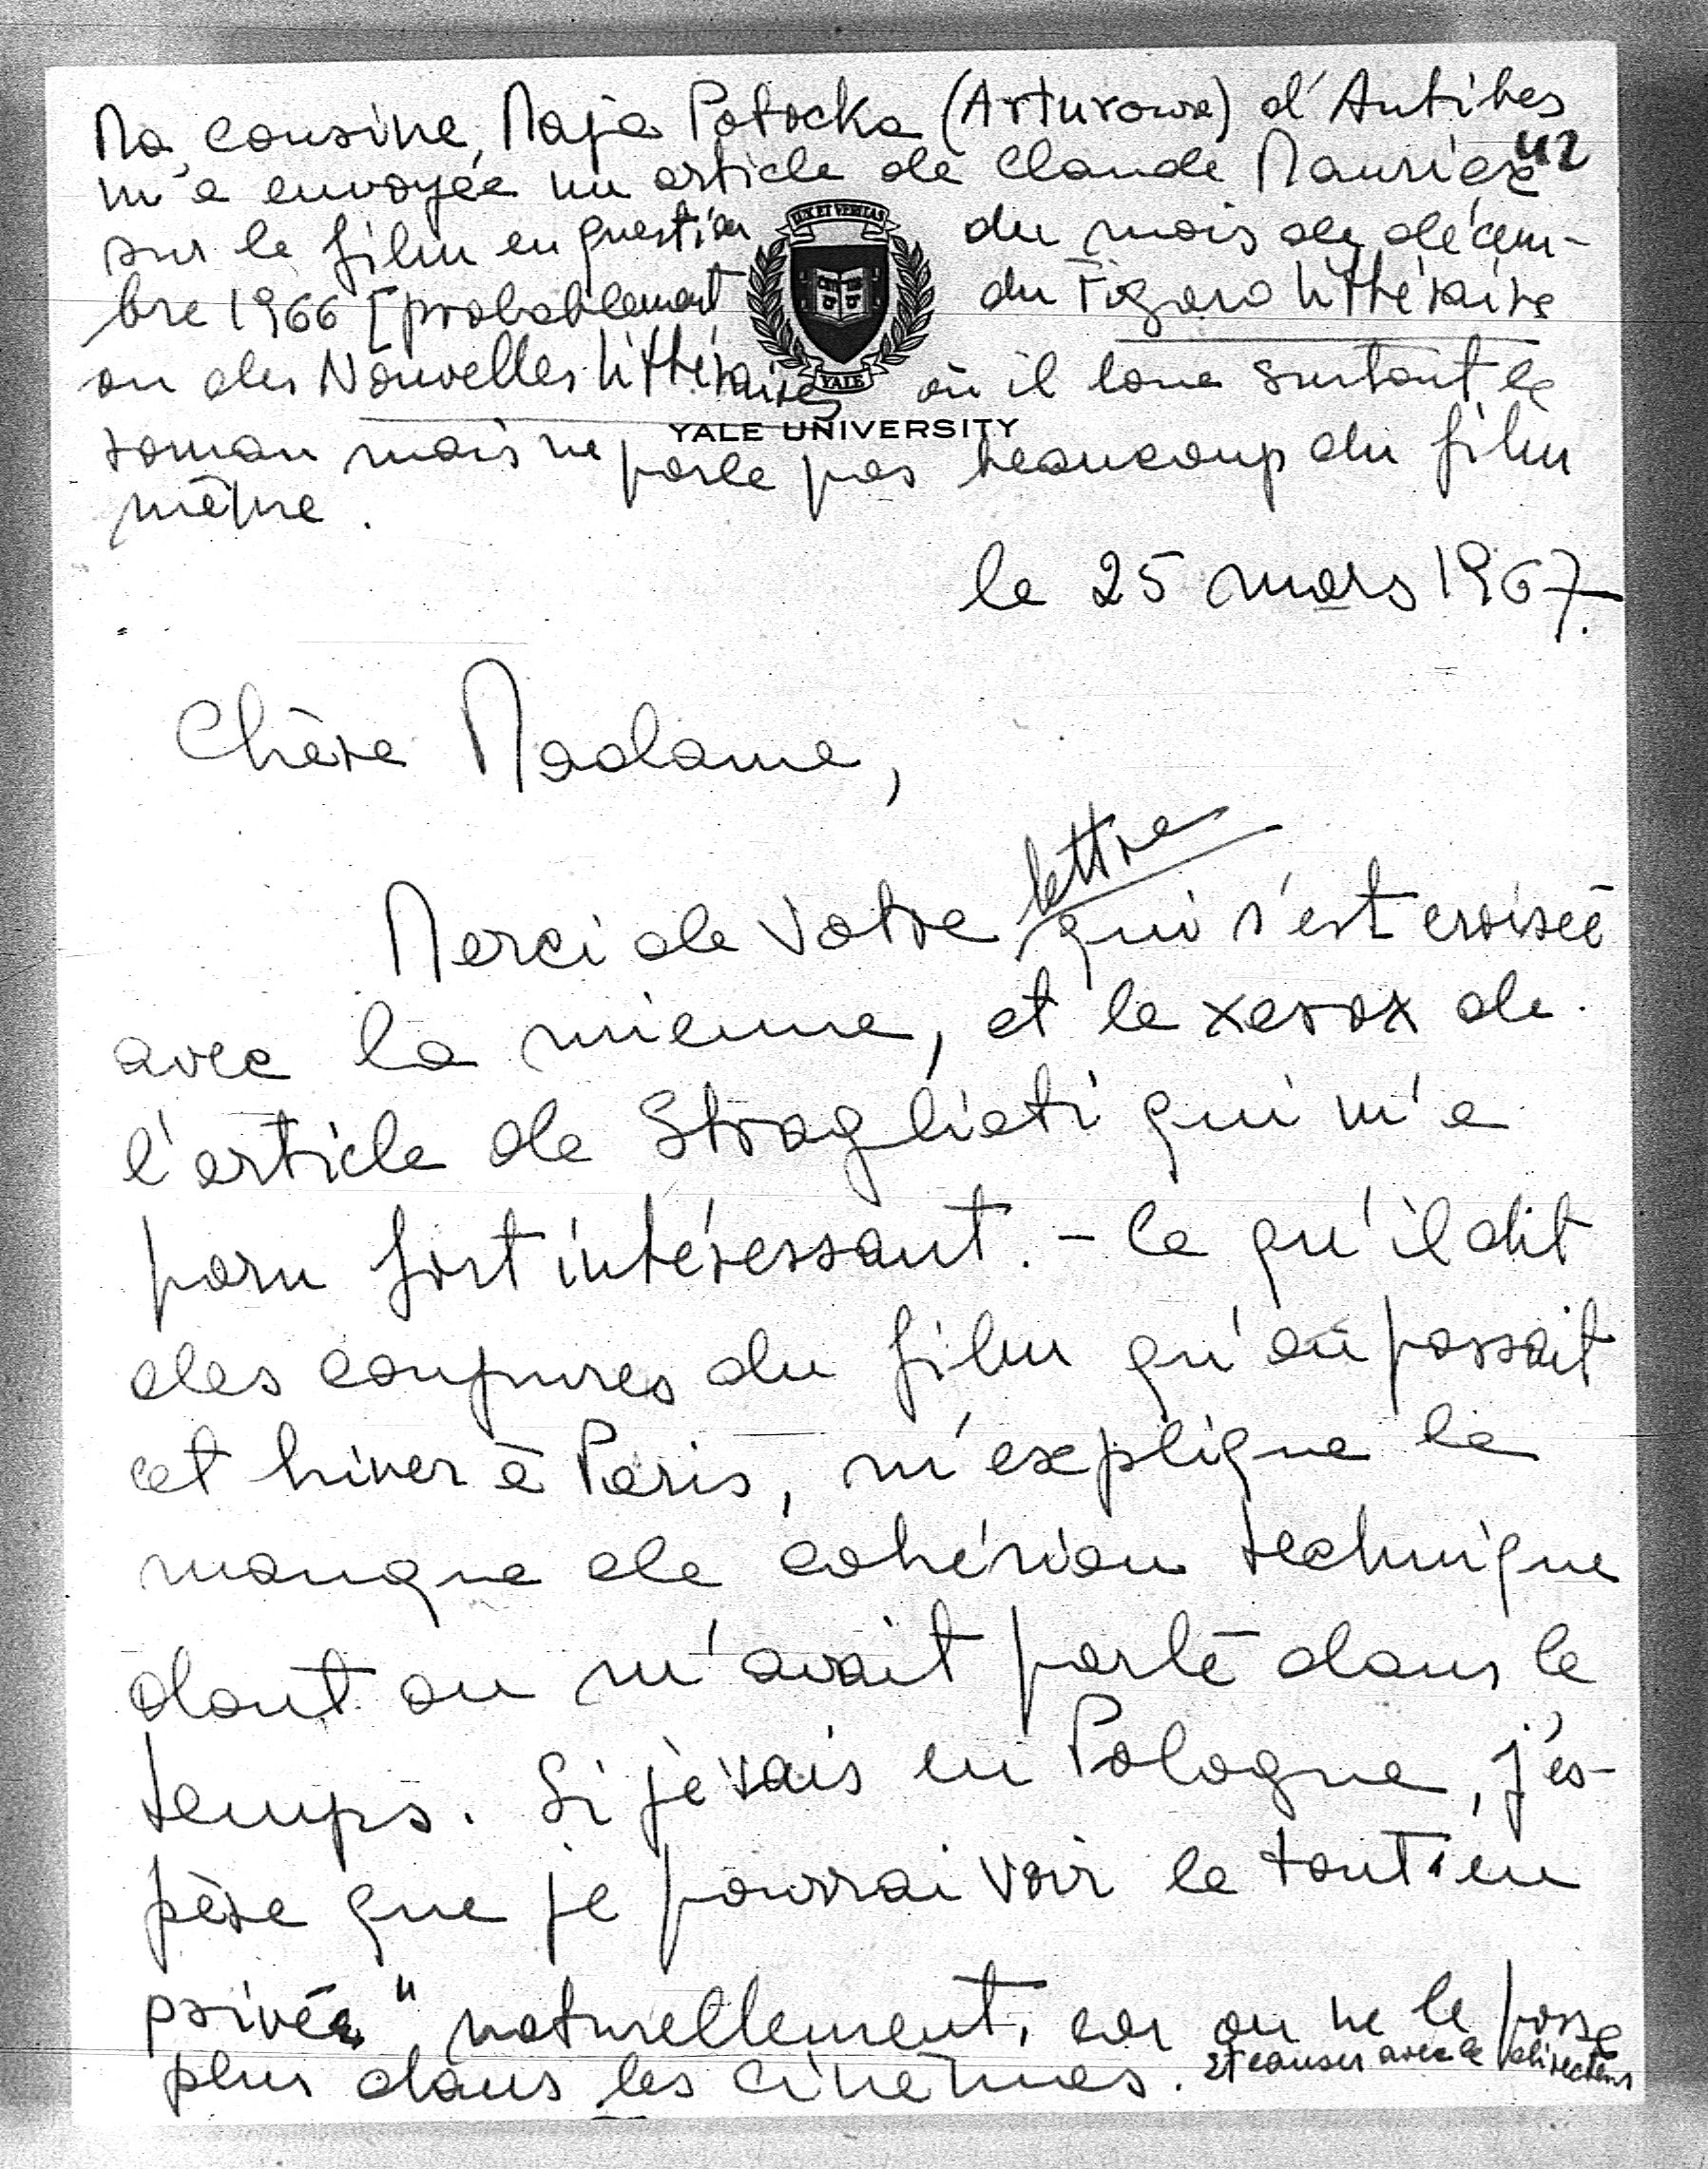 Ma cousine, Maja Potocka (Arturowa) d'Antibes
m'a envoyée un article de Claude Mauriac 42
sur le film en question du mois de décem-
bre 1966 [probablement du Figaro littéraire
ou des Nouvelles littéraires où il loue surtout le
roman mais ne parle pas beaucoup du film
même.
LUX ET VERITAS
YALE
YALE UNIVERSITY
le 25 mars 1967.
Chère Madame,
lettre
Merci de Votre qui s'est croisée
avec la mienne, et le xerox de
l'article de Stragliati qui m'a
paru fort intéressant. - Ce qu'il dit
des coupures du film qu'on passait
cet hiver à Paris, m'explique le
manque de cohésion technique
dont on m'avait parlé dans le
temps. Si je vais en Pologne, j'es-
père que je pourrai voir le tout "en
privée" naturellement, car on ne le passe
plus dans les cinémas. et causer avec le directeur